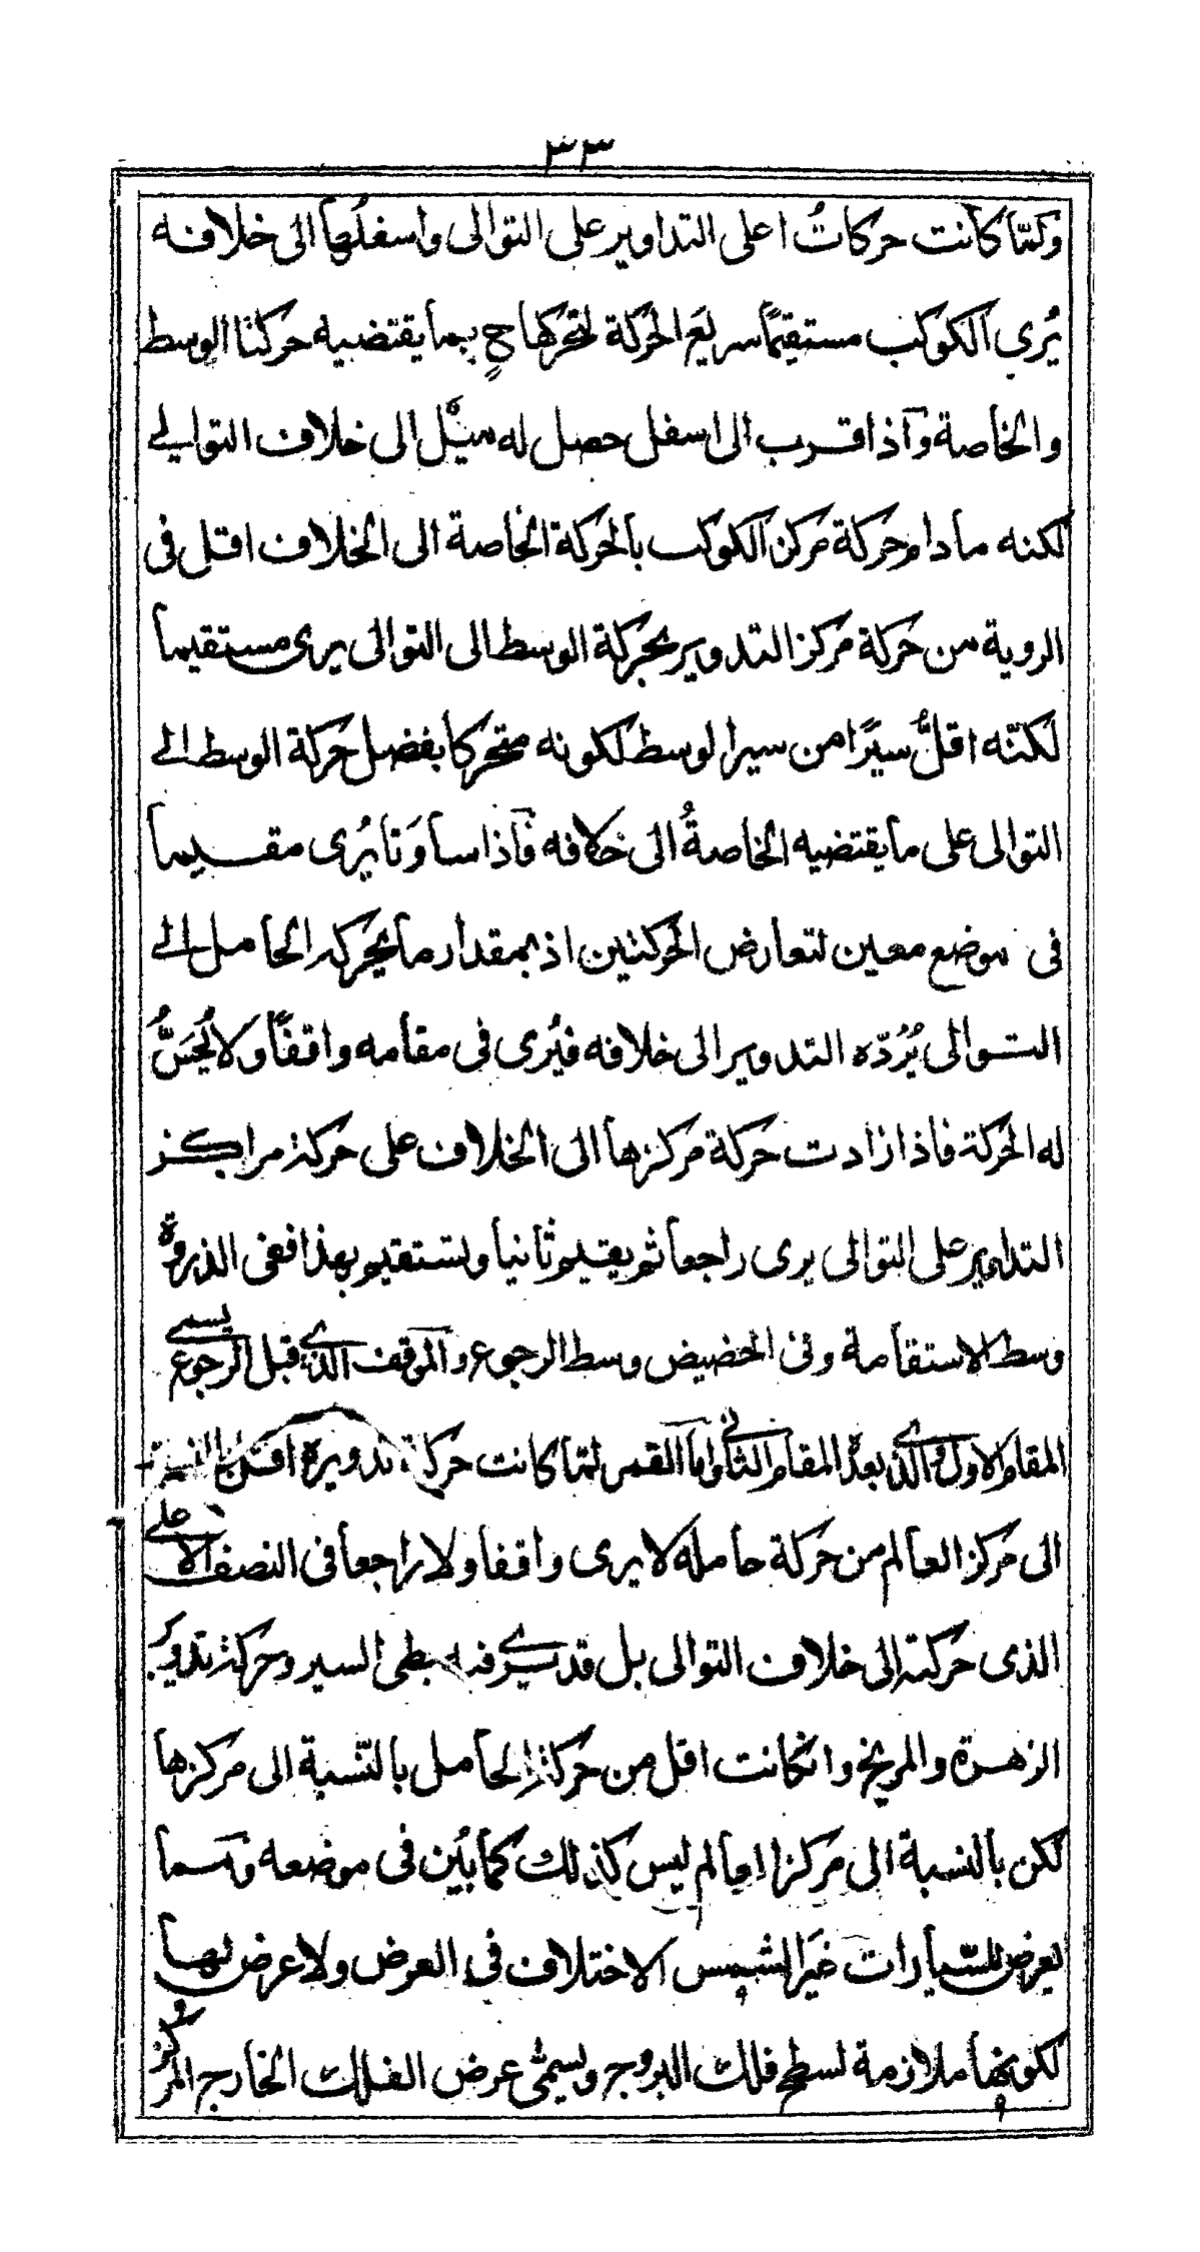 ٣٣
ولمّا كانت حركاتُ اعلى التداوير على التوالى واسفلُها الى خلافه
يُرى الكوكب مستقيمًا سريعَ الحركة لتحركها ح بما يقتضيه حركتا الوسط
والخاصة وآذا قرب الى اسفل حصل له ميلٌ الى خلاف التوالي
لكنه مادام حركة مركز الكوكب بالحركة الخاصة الى الخلاف اقل فى
الروية من حركة مركز التدوير بحركة الوسط الى التوالى يرى مستقيما
لكنّه اقلُّ سيرًا من سير الوسط لكونه متحركا بفضل حركة الوسط الي
التوالى على ما يقتضيه الخاصةُ الى خلافه فآذا ساوَتا يُرى مقيما
فى موضع معين لتعارض الحركتين اذ بمقدار ما يحركه الحامل الي
التوالى يُرُدّه التدوير الى خلافه فيُرى فى مقامه واقفًا ولا يُحَسُّ
له الحركة فاذا زادت حركة مركزها الى الخلاف على حركة مراكز
التداوير على التوالى يرى راجعا ثم يقيم ثانيا ويستقيم بهذا ففى الذروة
وسط الاستقامة وفى الحضيض وسط الرجوع والموقف الذي قبل الرجوع يسمى
المقام الاول والذي بعده المقام الثانى واما القمر لمّا كانت حركة تدويره اقل بالنسبة
الى مركز العالم من حركة حامله لا يرى واقفا ولا راجعا فى النصف الاعلى
الذى حركته الى خلاف التوالى بل قد يرى فيه بطى السير وحركة تدوير
الزهرة والمريخ وان كانت اقل من حركة الحامل بالنّسبة الى مركزها
لكن بالنسبة الى مركز العالم ليس كذلك كما بُيّن فى موضعه ومما
يعرض للسّيارات غيَر الشمس الاختلاف فى العرض ولا عرض لها
لكونها ملازمة لسطح فلك البروج ويسمّى عرض الفلك الخارج المركز